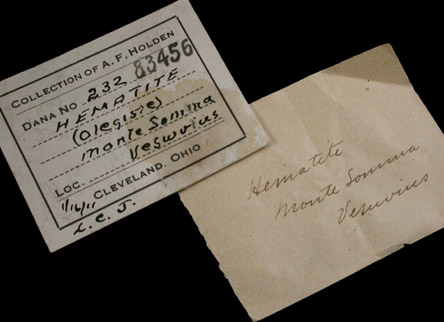 COLLECTION OF A. F. HOLDEN
83456
DANA No 232
HEMATITE
(Olegiste)
Monte Somma
Vesuvius
LOC.
CLEVELAND, OHIO
1/16/11
L. C. J.
Hematite
Monte Somma
Vesuvius